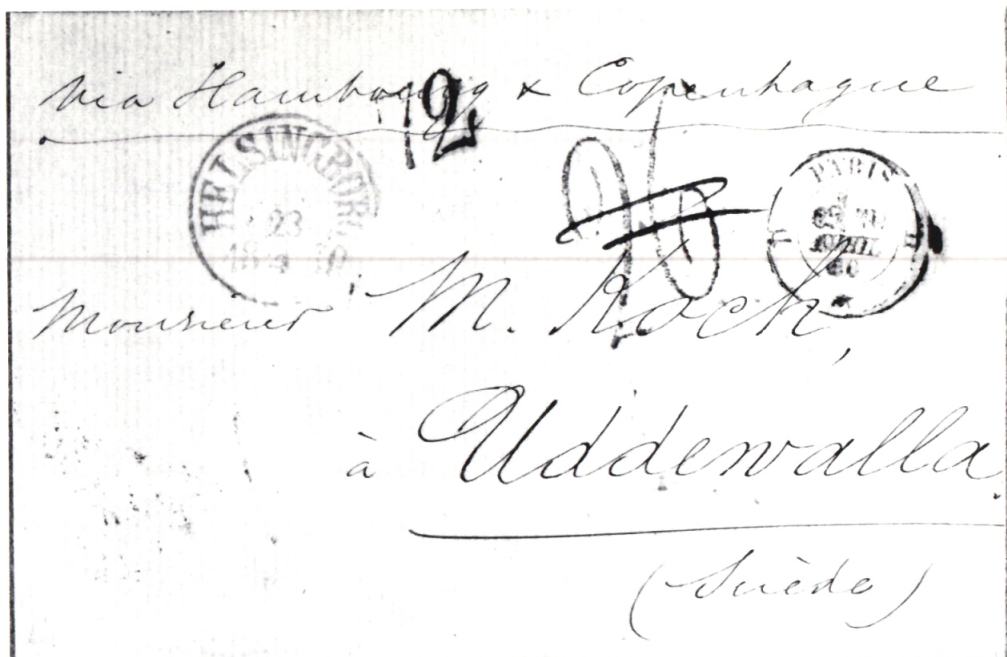 via Hambourg & Copenhague
12
HELSINGBORG
23
PARIS
60
Monsieur M. Koch,
à Uddewalla
(Suède)